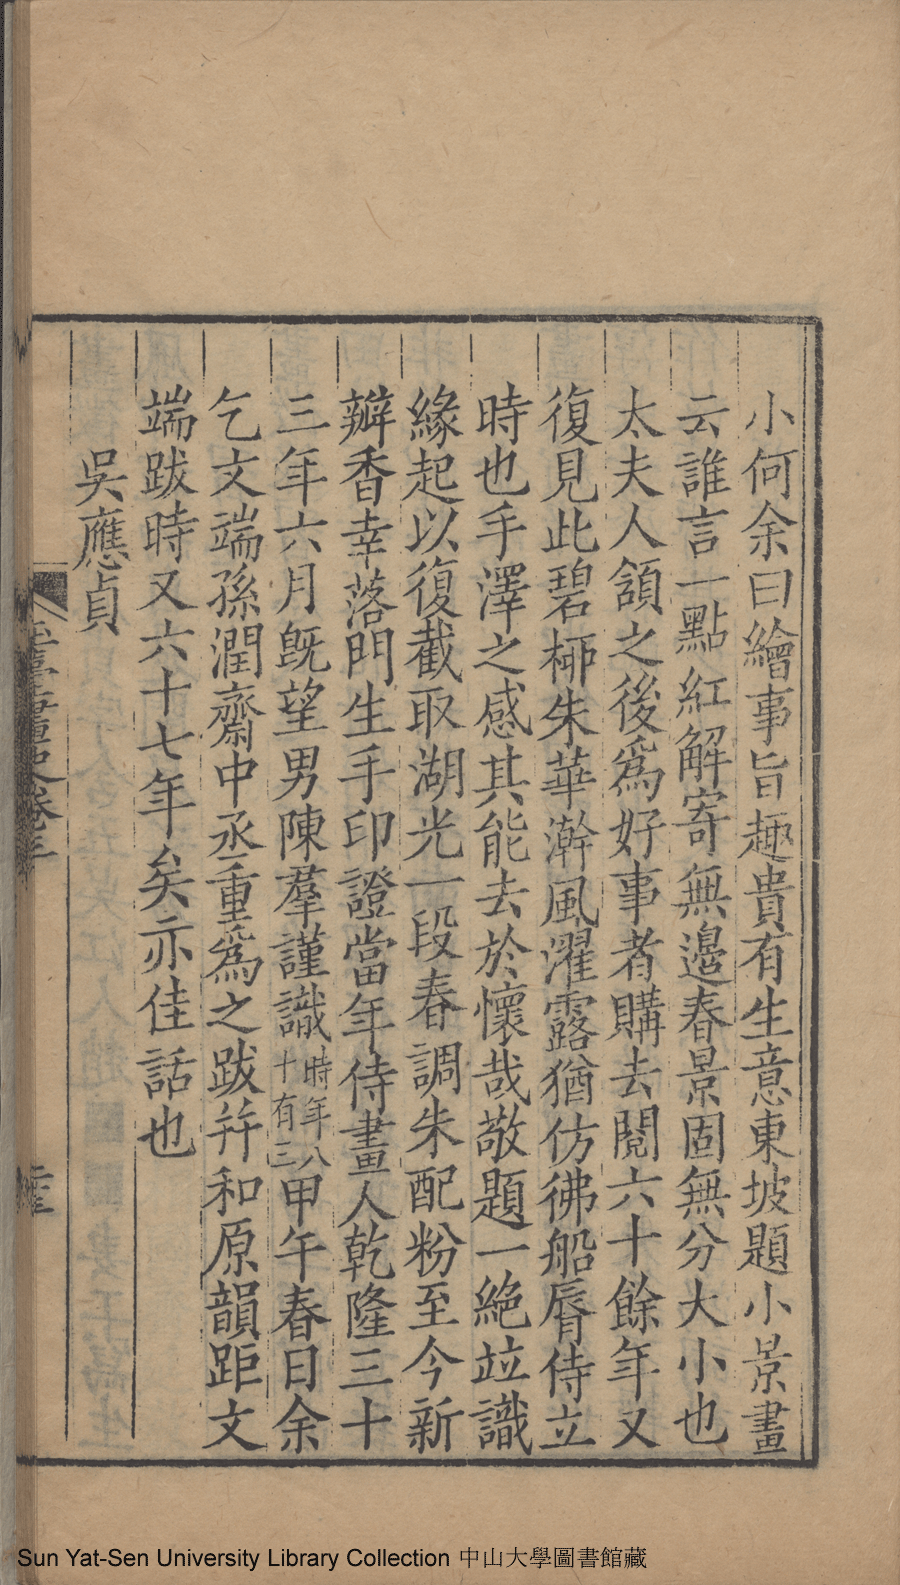 小何余曰繪事旨趣貴有生意東坡題小景畫
云誰言一點紅解寄無邊春景固無分大小也
太夫人頷之後爲好事者購去閱六十餘年又
復見此碧桺朱華澣風濯露猶仿彿船脣侍立
時也手澤之感其能去於懷哉敬題一絶竝識
緣起以復截取湖光一段春調朱配粉至今新
瓣香幸落門生手印證當年侍畫人乾隆三十
三年六月旣望男陳羣謹識時年八十有三甲午春日余
乞文端孫潤齋中丞重爲之跋幷和原韻距文
端跋時又六十七年矣亦佳話也
吳應貞
玉臺畫史卷三
Sun Yat-Sen University Library Collection 中山大學圖書館藏